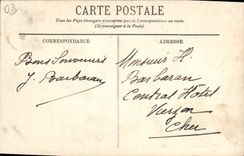 03
CARTE POSTALE
Tous les Pays étrangers n'acceptent pas la Correspondance au recto.
(Se renseigner à la Poste).
CORRESPONDANCE
ADRESSE
Bons Souvenirs
J. Barbaran
Monsieur H.
Barbaran
Central Hotel
Vierzon
Cher